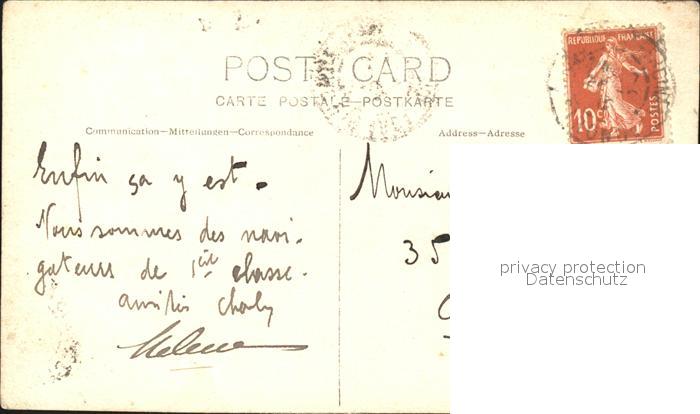 POST CARD
CARTE POSTALE—POSTKARTE
Communication—Mitteilungen—Correspondance
Address—Adresse
REPUBLIQUE FRANÇAISE
10c
POSTES
Enfin ça y est.
Nous sommes des navi-
gateurs de 1ère classe.
amitiés Charly
Helene
Monsieur
35
privacy protection
Datenschutz